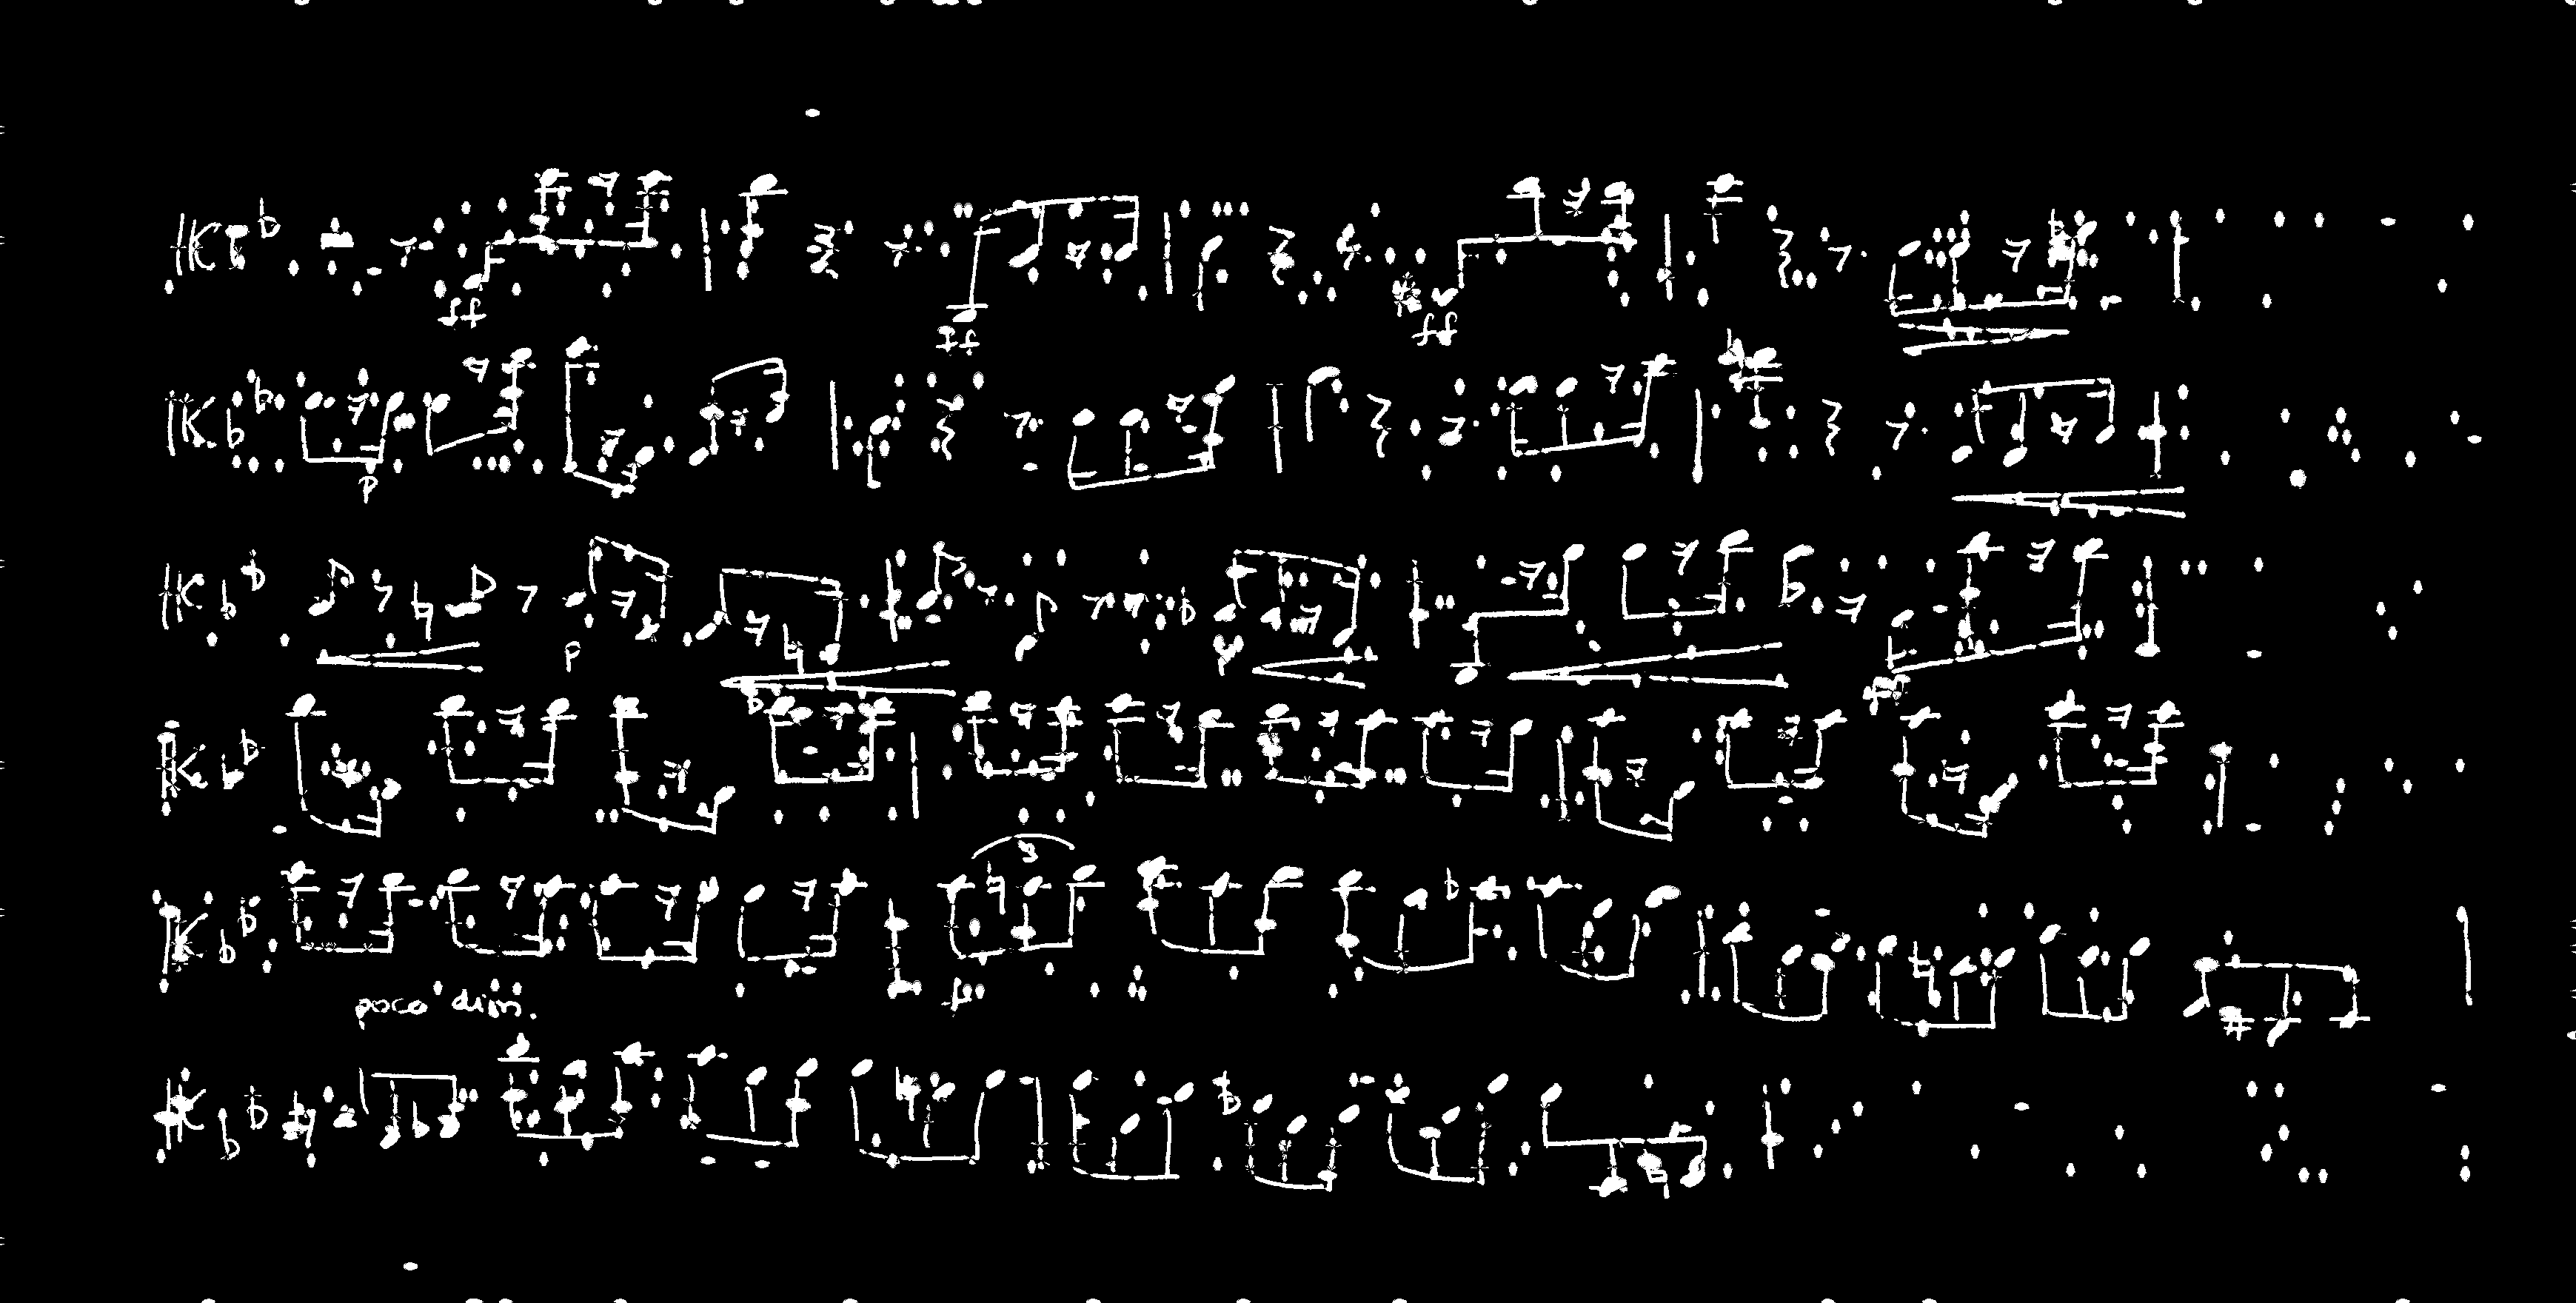 ff ff ff
p
p p
ff
3
f
poco dim.